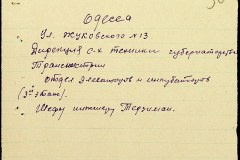 Одесса
ул. Жуковского №13
Дирекция с-х техники губернаторства
Транснистрии
Отдел элеваторов и инкубаторов
(3й этаж).
Шефу инженеру Терзиман.